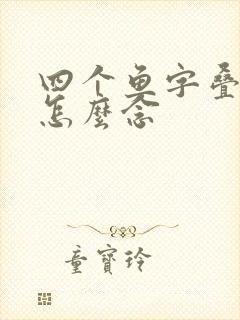 四个鱼字叠
怎麼念
童寶玲